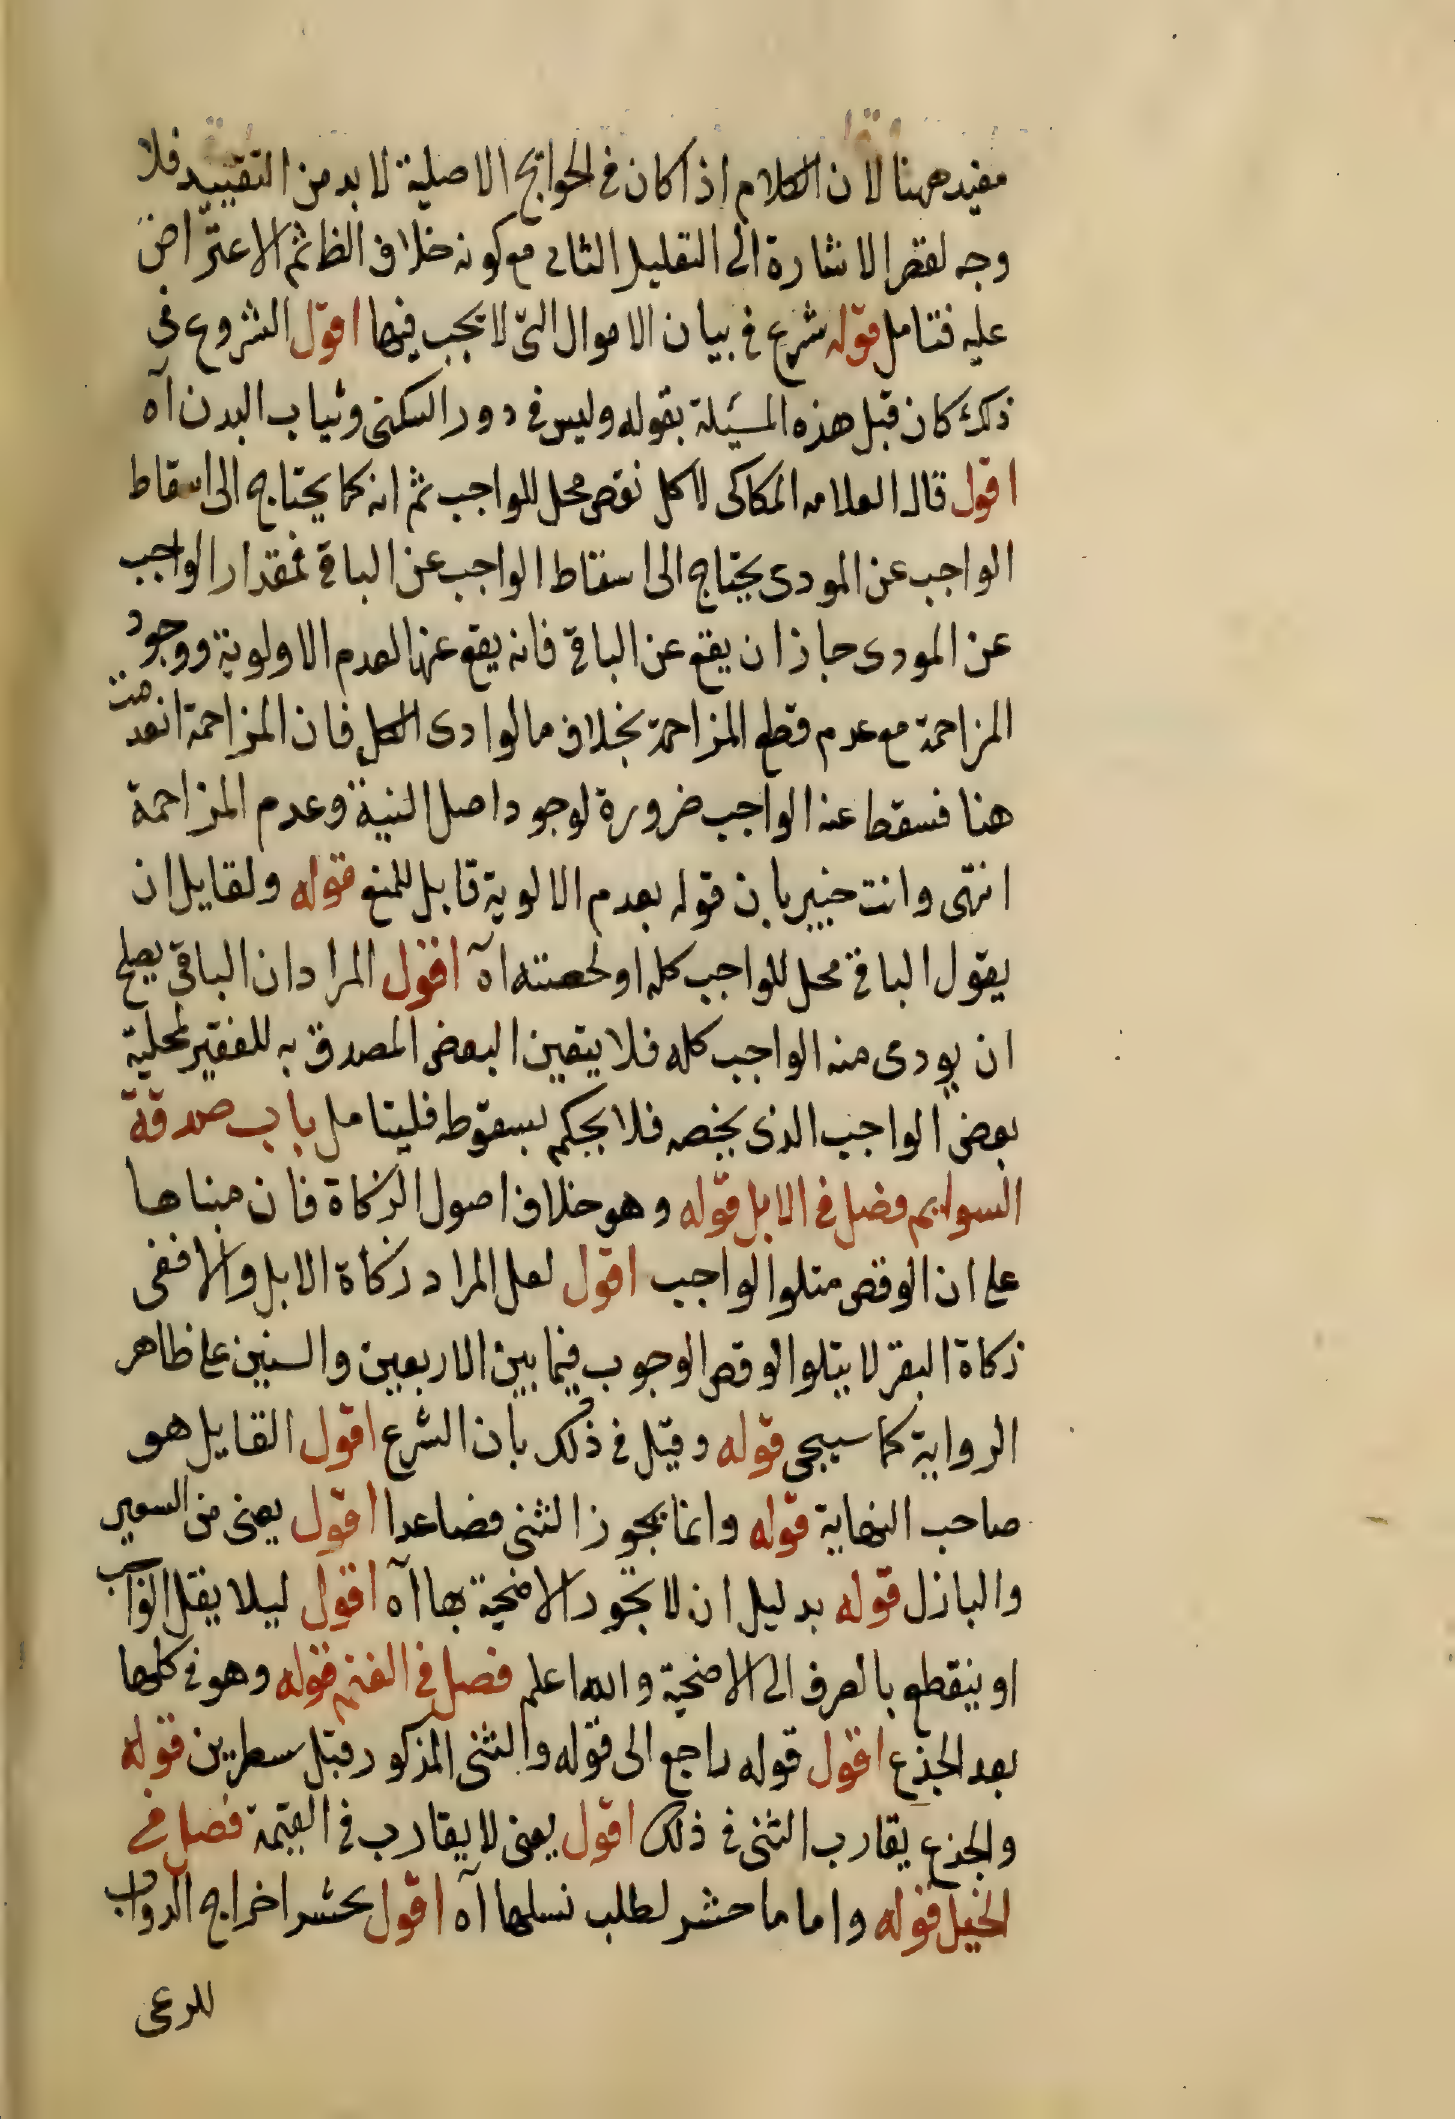 مفيد ههنا لان الكلام اذا كان في الحوايج الاصلية لا بد من التقييد فلا
وجه لقصر الاشارة الى التعليل الثاني مع كونه خلاف الظ ثم الاعتراض
عليه فتامل قوله شرع في بيان الاموال التي لا يجب فيها اقول الشروع في
ذلك كان قبل هذه المسئلة بقوله وليس في دور السكنى وثياب البدن آه
اقول قال العلامه الكاكى لا كل نقص محل للواجب ثم انه كما يحتاج الى اسقاط
الواجب عن المودى يحتاج الى اسقاط الواجب عن الباقي فمقدار الواجب
عن المودى جاز ان يقع عن الباقي فانه يقع عنها لعدم الاولوية ووجود
المزاحمة مع عدم قطع المزاحمة بخلاف ما لو ادى الكل فان المزاحمة انعدمت
هنا فسقط عنه الواجب ضرورة لوجود اصل النية وعدم المزاحمة
انتهى وانت خبير بان قوله بعدم الالوية قابل للمنع قوله ولقايل ان
يقول الباقي محل للواجب كله او لحصته آه اقول المراد ان الباقي يصلح
ان يودى منه الواجب كله فلا يتعين البعض المصدق به للفقير لمحلية
بعض الواجب الذى يخصه فلا يحكم بسقوطه فليتامل باب صدقة
السوايم فصل في الابل قوله وهو خلاف اصول الزكاة فان مبناها
على ان الوقص متلوا لواجب اقول لعل المراد زكاة الابل والا ففى
زكاة البقر لا يتلوا الوقص الوجوب فيما بين الاربعين والستين على ظاهر
الرواية كما سيجى قوله وقيل في ذلك بان الشرع اقول القايل هو
صاحب النهاية قوله وانما يجوز الثنى فصاعدا اقول يعنى من السعير
والبازل قوله بدليل ان لا تجوز الاضحية بها آه اقول ليلا يقل الواجب
او ينقطع بالصرف الى الاضحية والله اعلم فصل في الغنم قوله وهو في كلها
بعد الجذع اقول قوله راجع الى قوله والثنى المذكور قبل سطرين قوله
والجذع يقارب الثنى في ذلك اقول يعنى لا يقارب في القيمة فصل في
الخيل قوله واما ما حشر لطلب نسلها آه اقول يحشر اخراج الدواب
للرعى